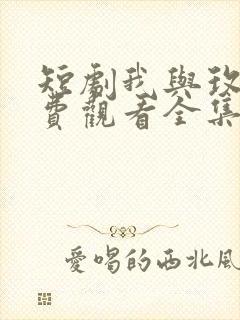 短劇我與玫
費觀看全集
愛唱的西北風